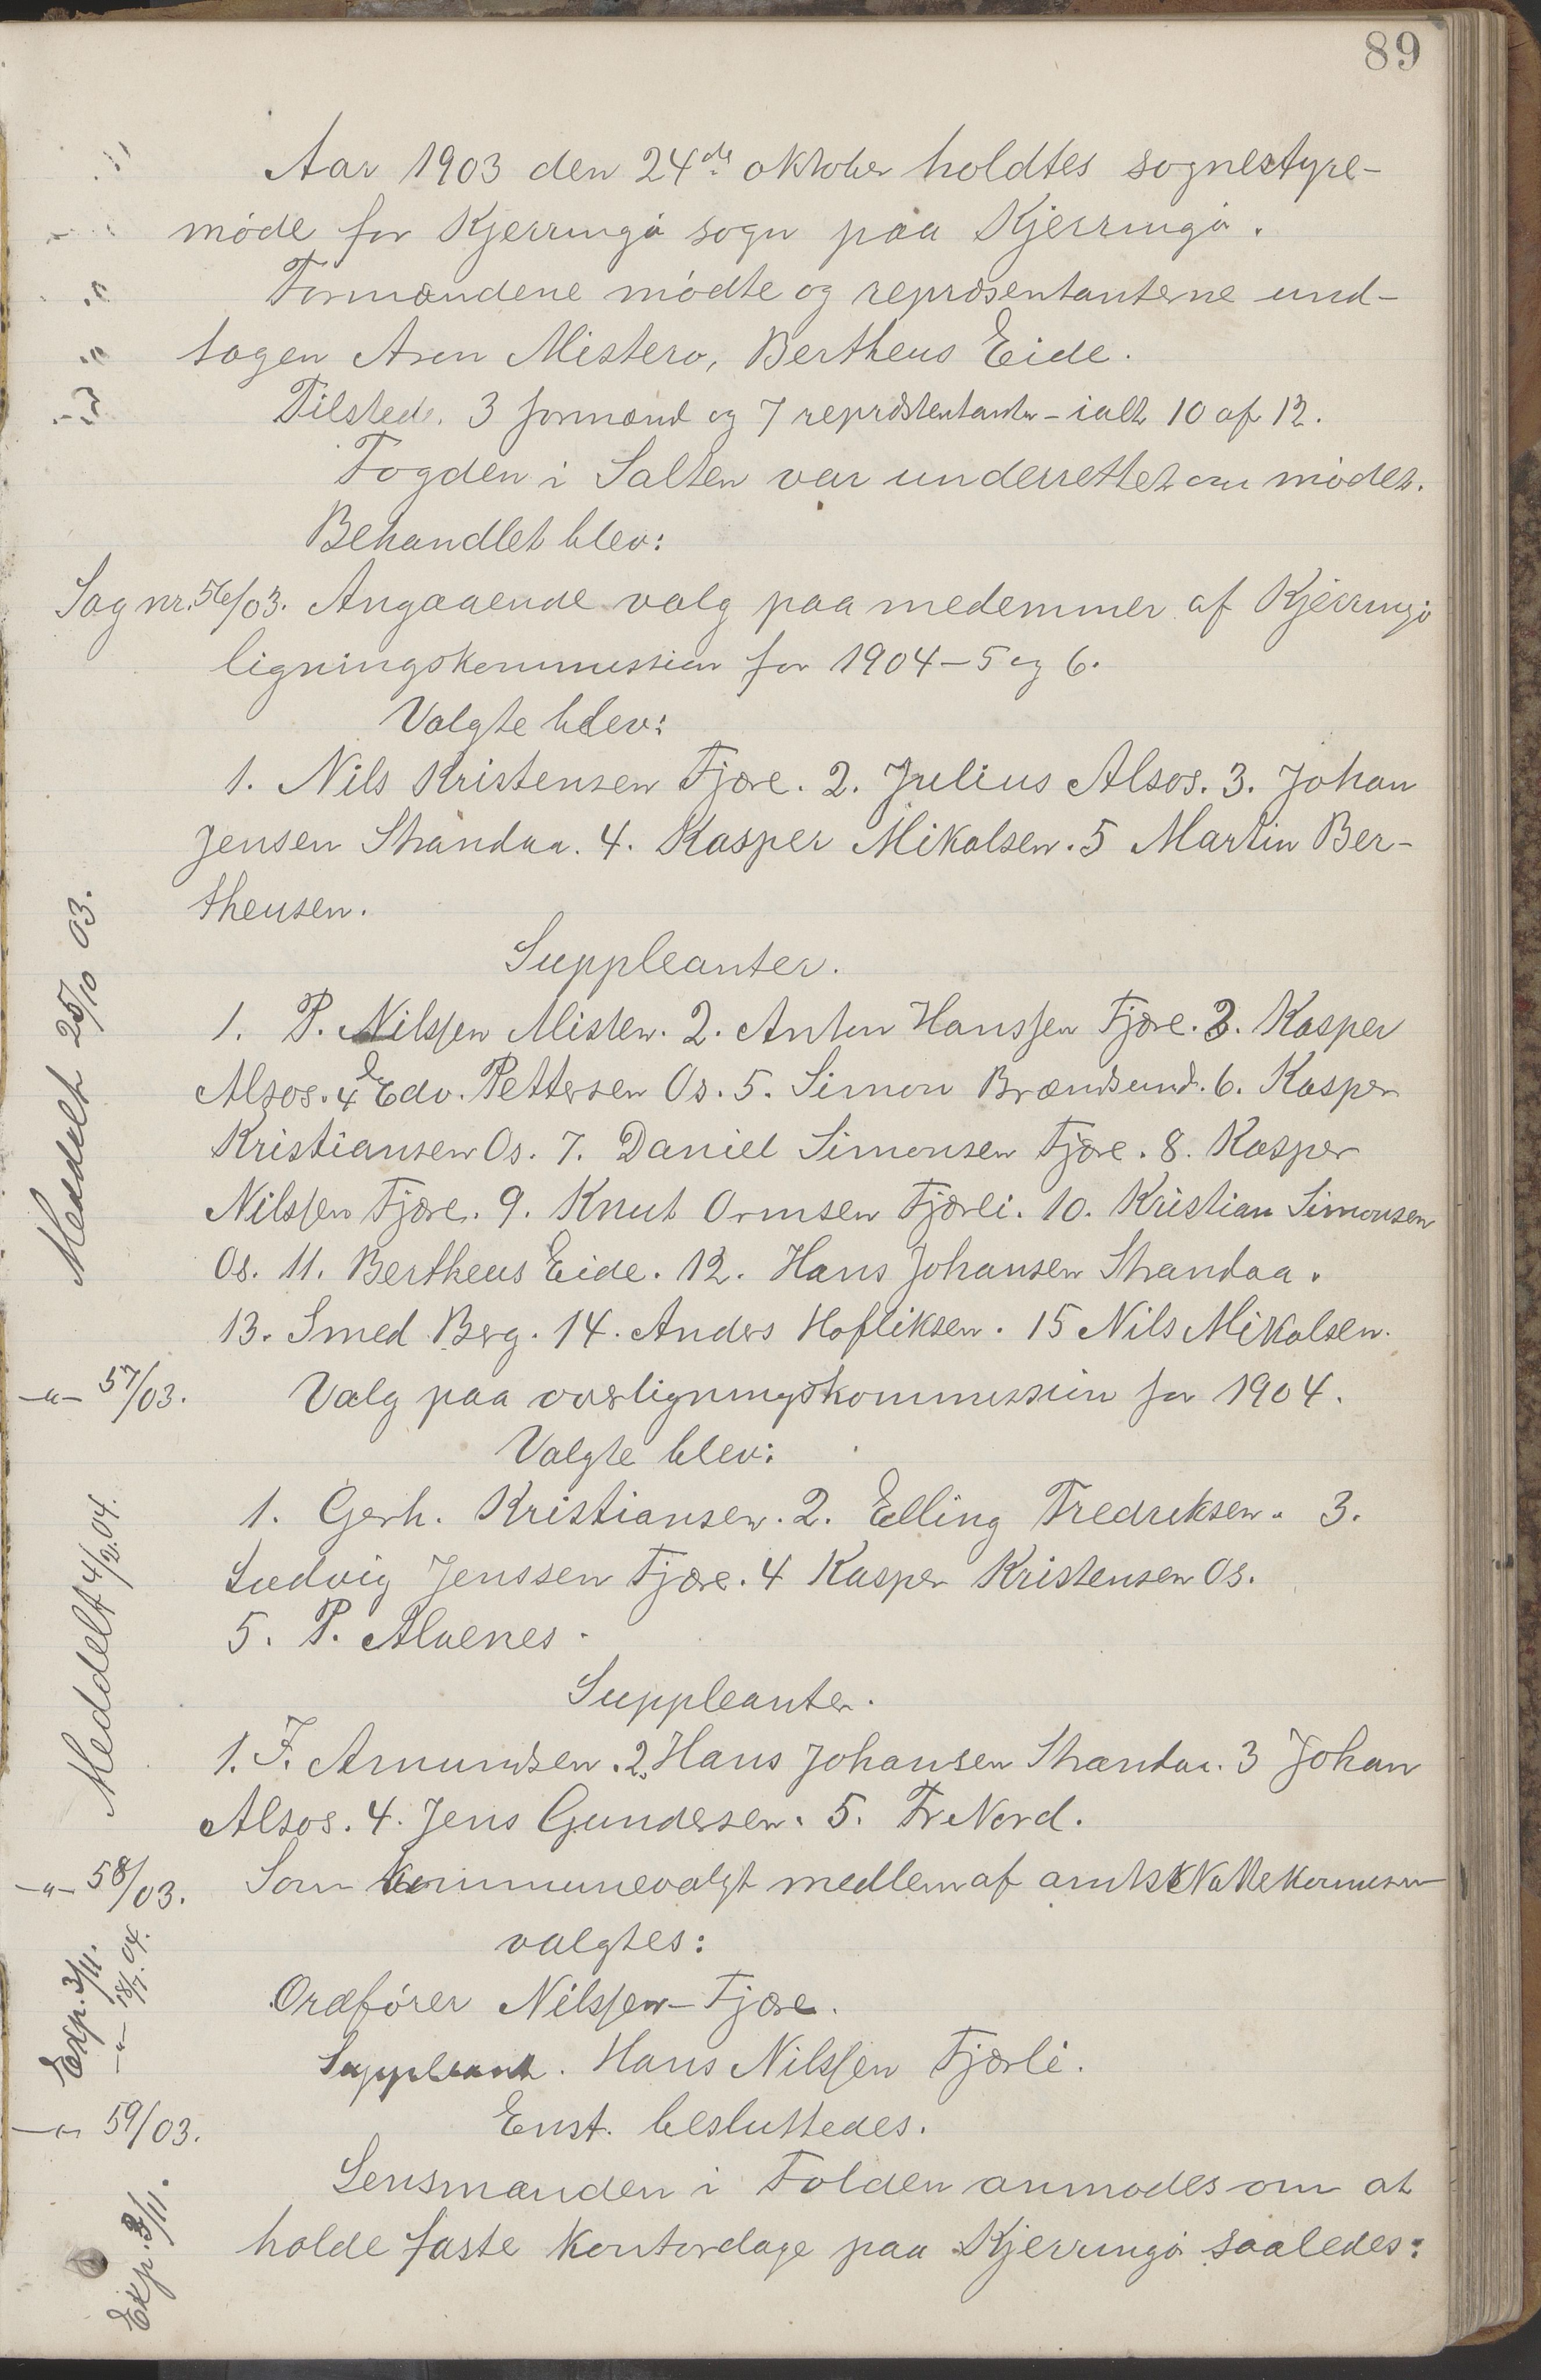 89
Aar 1903 den 24de oktober holdtes sognestyre-
møde for Kjerringø sogn paa Kjerringø.
Formændene mødte og repræsentanterne und-
tagen Aron Misterø, Bertheus Eide.
Tilstede. 3 formænd og 7 repræstentanter - ialt 10 af 12.
Fogden i Salten var underrettet om mødet.
Behandlet blev:
Sag nr. 56/03. Angaaende valg paa medemmer af Kjerringø
ligningskommission for 1904-5 og 6.
Valgte blev:
1. Nils Kristensen Fjære. 2. Julius Alsos. 3. Johan
Jensen Strandaa. 4. Kasper Mikalsen. 5 Martin Ber-
theusen.
Meddelt 25/10 03.
Suppleanter.
1. P. Nilssen Misten. 2. Anton Hanssen Fjære. 3. Kasper
Alsos. 4 Edv. Pettersen Os. 5. Simon Brændsund. 6. Kasper
Kristiansen Os. 7. Daniel Simonsen Fjære. 8. Kasper
Nilssen Fjære. 9. Knut Ormsen Fjærli. 10. Kristian Simonsen
Os. 11. Bertheus Eide. 12. Hans Johansen Strandaa.
13. Smed Berg. 14. Anders Hofliksen. 15 Nils Mikalsen.
-"- 57/03. Valg paa overligningskommission for 1904.
Valgte blev:
1. Gerh. Kristiansen. 2. Elling Fredriksen. 3.
Ludvig Jenssen Fjære. 4 Kasper Kristensen Os.
5. P. Alvenes.
Meddelt 4/2.04.
Suppleanter.
1. F. Amundsen. 2. Hans Johansen Strandaa. 3 Johan
Alsos. 4. Jens Gundersen. 5. Fr Nord.
-"- 58/03. Som kommunevalgt medlem af amtsskattekommision
valgtes:
Exp. 3/11.
-"- 18/7. 04.
Ordfører Nilssen - Fjære.
Suppleant. Hans Nilssen Fjærli.
-"- 59/03. Enst. besluttedes.
Lensmanden i Folden anmodes om at
holde faste kontordage paa Kjerringø saaledes:
Exp. 3/11.